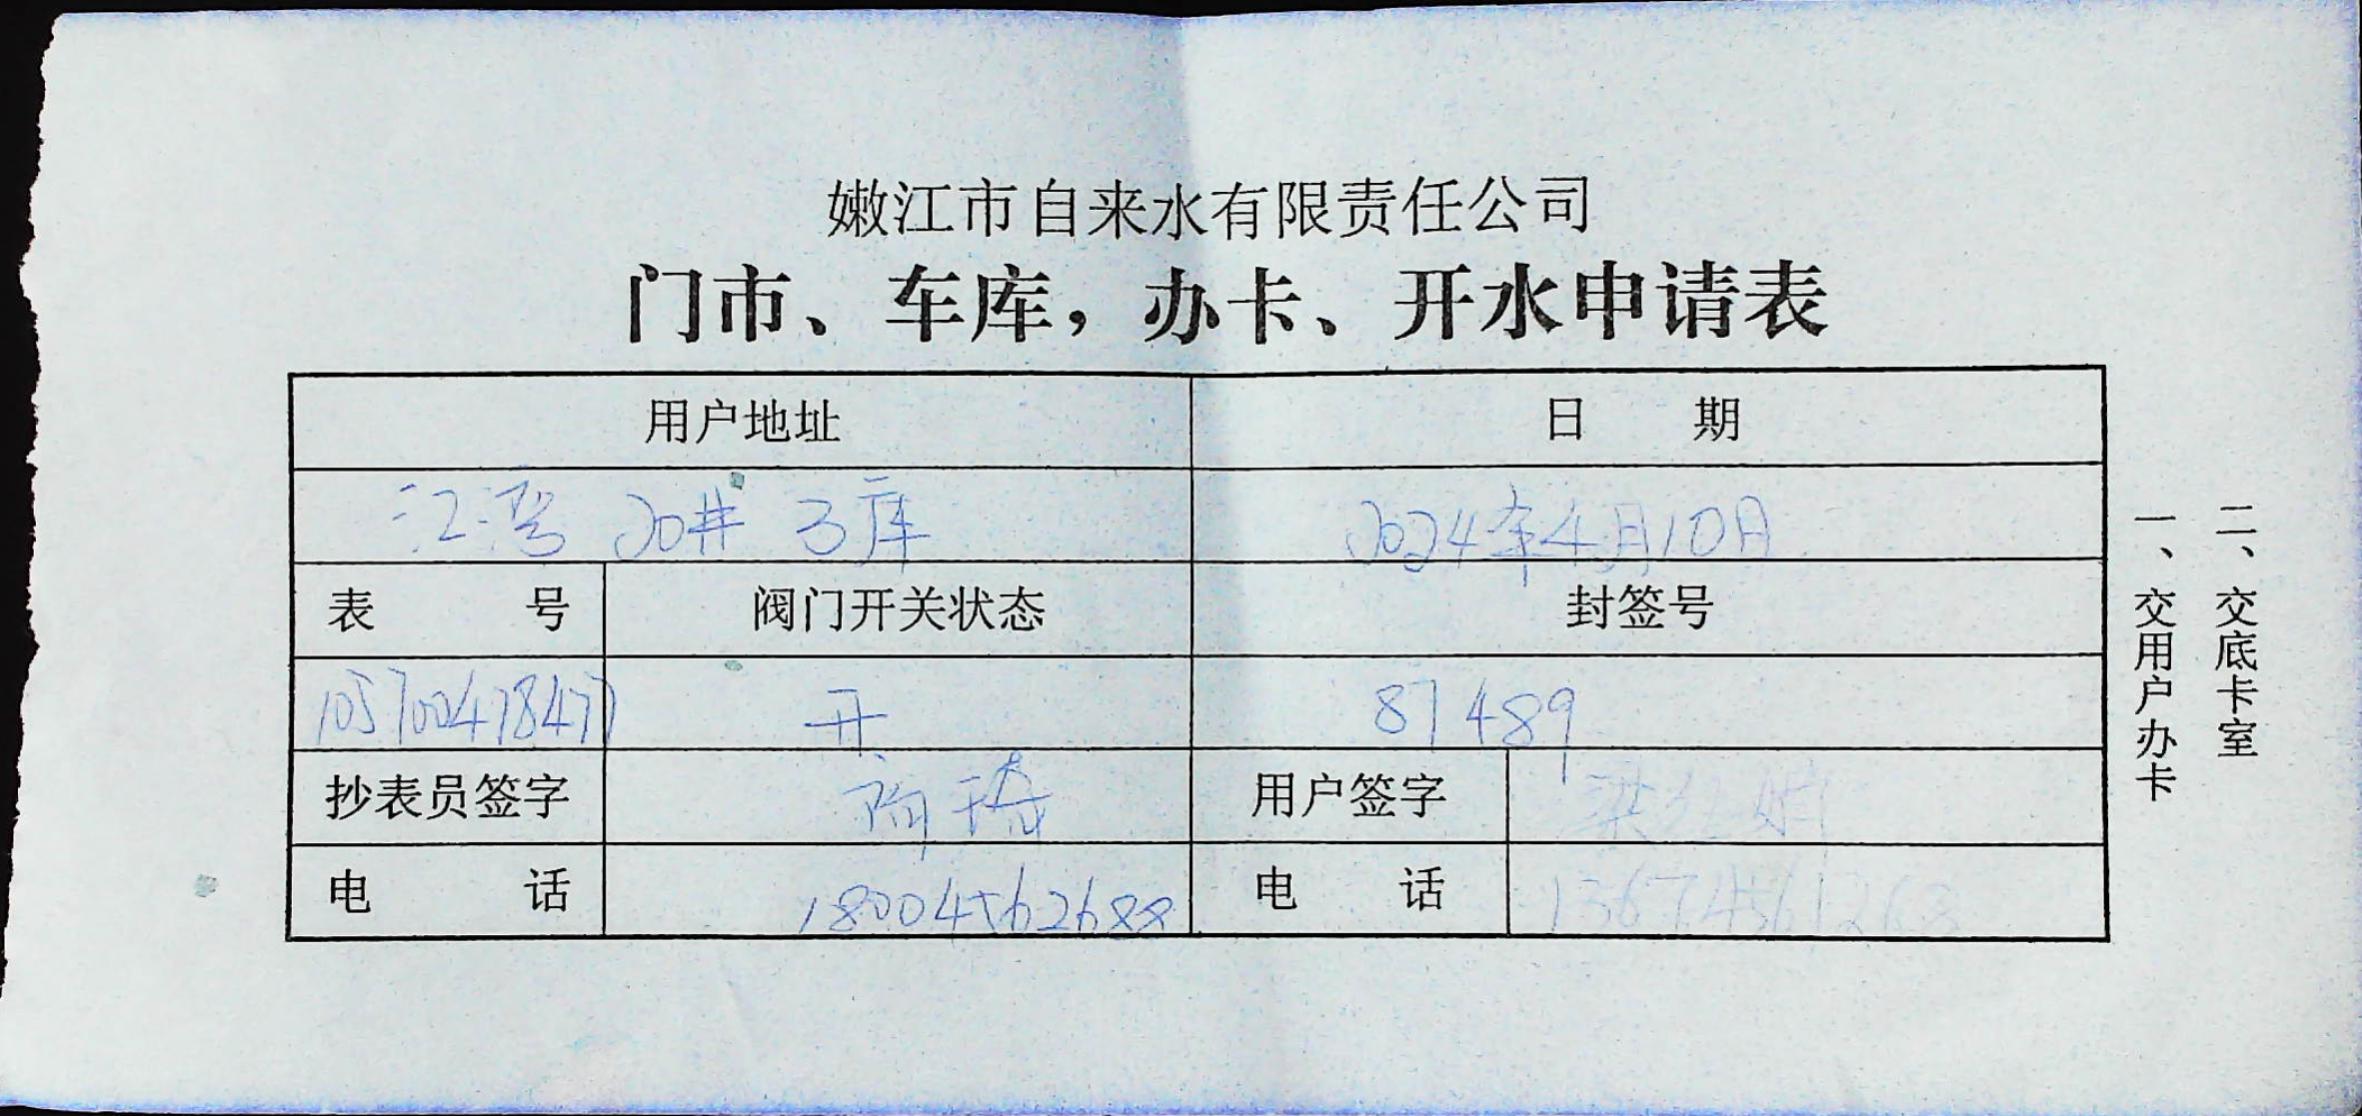 嫩江市自来水有限责任公司
门市、车库，办卡、开水申请表
用户地址 日 期
江湾 20# 3库 2024年4月10日
表 号 阀门开关状态 封签号
105700478477 开 87489
抄表员签字 用户签字
电 话 18004562688 电 话 13674561268
一、交用户办卡
二、交底卡室